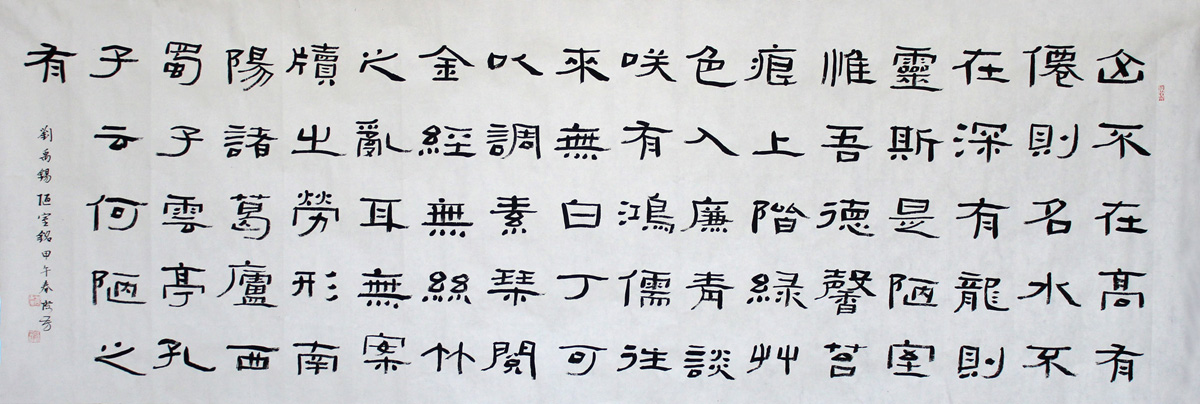 山不在高有
僊則名水不
在深有龍則
靈斯是陋室
惟吾德馨苔
痕上階緑艸
色入廉青談
咲有鴻儒往
來無白丁可
以調素琴閱
金經無絲竹
之亂耳無案
牘之勞形南
陽諸葛廬西
蜀子雲亭孔
子云何陋之
有
劉禹錫陋室銘甲午春